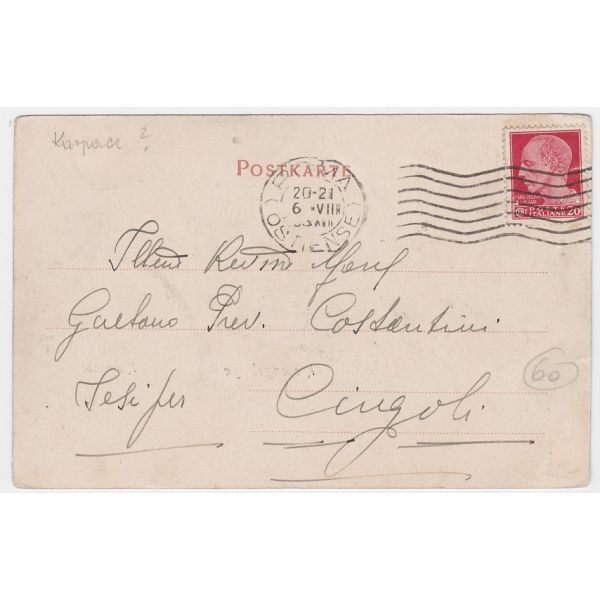 Karpacz ?
POSTKARTE
ROMA
20-21
6 VIII
OSTIENSE
POSTE
ITALIANE 20
Illmo Revmo Mons
Gaetano Prev. Costantini
Jesi per Cingoli
60